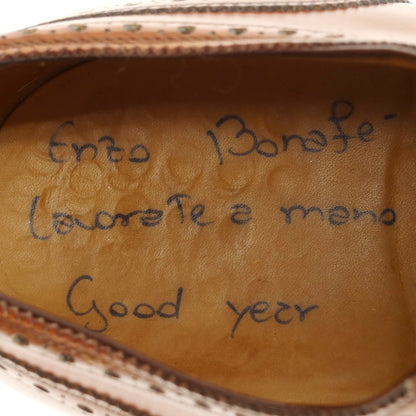 Enzo Bonafé
Lavorate a mano
Good year